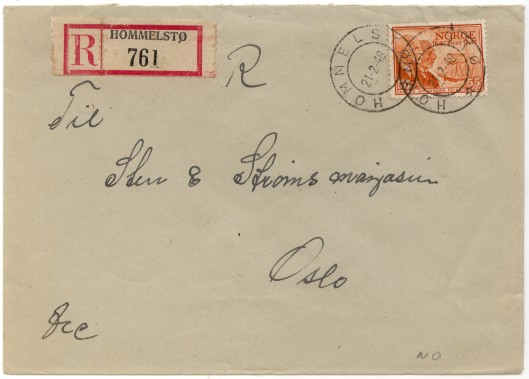 R HOMMELSTØ
761
R
HOMMELSTØ
21-2-48
NORGE
Til
Sten & Strøms magasin
Oslo
NO